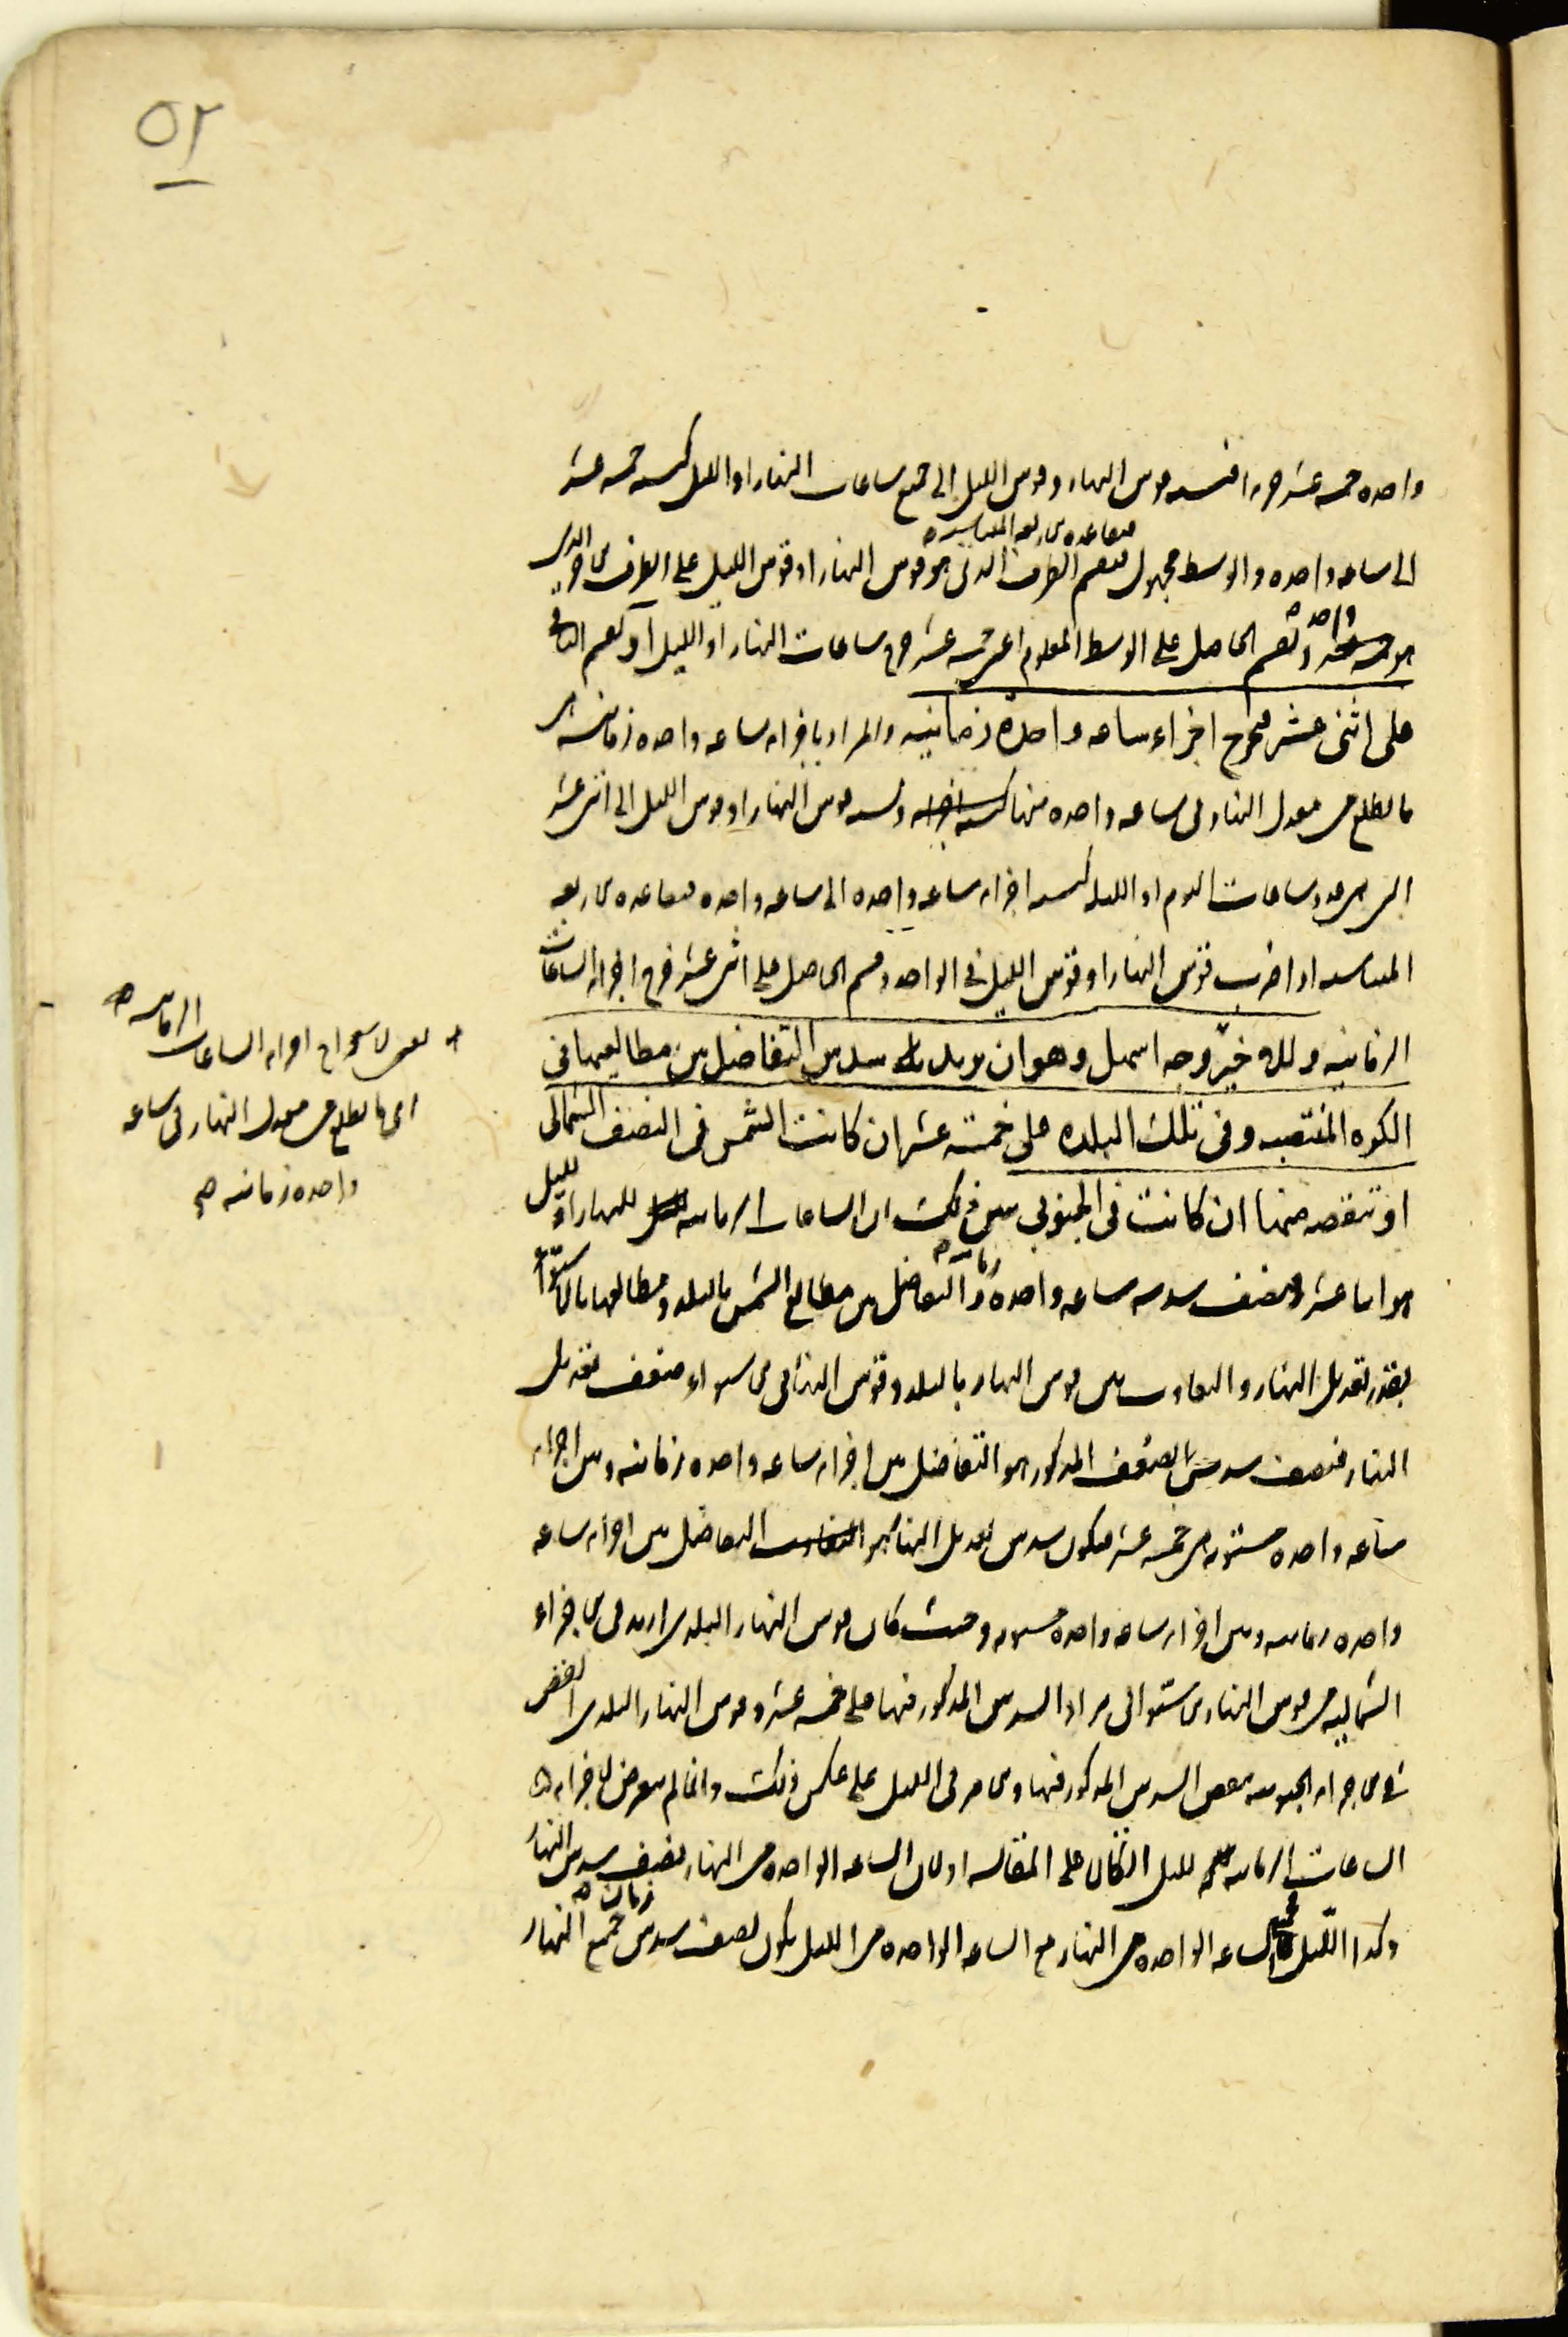 ٥٢
واحده خمسه عشر جزءا فنسبه قوس النهار او قوس الليل الى جميع ساعات النهار او الليل كنسبه خمسه عشر
فبقاعده الاربعه المتناسبه
الى ساعه واحده والوسط مجهول فنقسم الطرف الذى هو قوس النهار او قوس الليل على الطرف الاخر الذى
هو واحد ونقسم الحاصل على الوسط المعلوم اعنى خمسه عشر خرج ساعات النهار او الليل او نقسم الباقى
على اثنى عشر فيخرج اجزاء ساعه واحدة زمانيه والمراد باجزاء ساعه واحده زمانيه هى
ما يطلع من معدل النهار فى ساعه واحده منها ونسبه قوس النهار او قوس الليل الى اثنى عشر
التى هى عدد ساعات اليوم او الليله كنسبه اجزاء ساعه واحده الى ساعه واحده فبقاعده الاربعه
المتناسبه اذا ضرب قوس النهار او قوس الليل فى الواحد وقسم الحاصل على اثنى عشر خرج اجزاء الساعات
الزمانيه ولك خير وجه اسهل وهو ان يزيد سدس التفاضل بين مطالعيها فى
الكره المنتصبه وفى تلك البلده على خمسة عشر ان كانت الشمس فى النصف الشمالى
او تنقصه منها ان كانت فى الجنوبى بين ذلك ان الساعات الزمانيه للنهار او لليل
هو اثنا عشر ونصف سدسه ساعه واحده زمانيه والتفاضل بين مطالع الشمس بالبلد ومطالعها بالاستواء
بقدر تعديل النهار والتفاوت بين قوس النهار بالبلد وقوس النهار فى الاستواء ضعف تعديل
النهار فنصف سدس الضعف المذكور هو التفاضل بين اجزاء ساعه واحده زمانيه وبين اجزاء
ساعه واحده مستويه هى خمسه عشر فيكون سدس تعديل النهار هو التفاضل بين اجزاء ساعه
واحده زمانيه وبين اجزاء ساعه واحده مستويه وحيث كان قوس النهار البلدى ازيد فى الاجزاء
الشماليه من قوس النهار الاستوائى يزاد السدس المذكور فيها على خمسه عشر وقوس النهار البلدى انقص
فى الاجزاء الجنوبيه ينقص السدس المذكور فيها والامر فى الليل على عكس ذلك وانما لم يتعرض لاجزاء
الساعات الزمانيه لليل اتكالا على المقايسه اذ لان الساعه الواحده من النهار نصف سدس النهار
وكذا الليل فجميع الساعه الواحده من النهار مع الساعه الواحده من الليل يكون نصف سدس زمان جميع النهار
يعنى لاستخراج اجزاء الساعات الزمانيه
اى ما يطلع من معدل النهار فى ساعه
واحده زمانيه